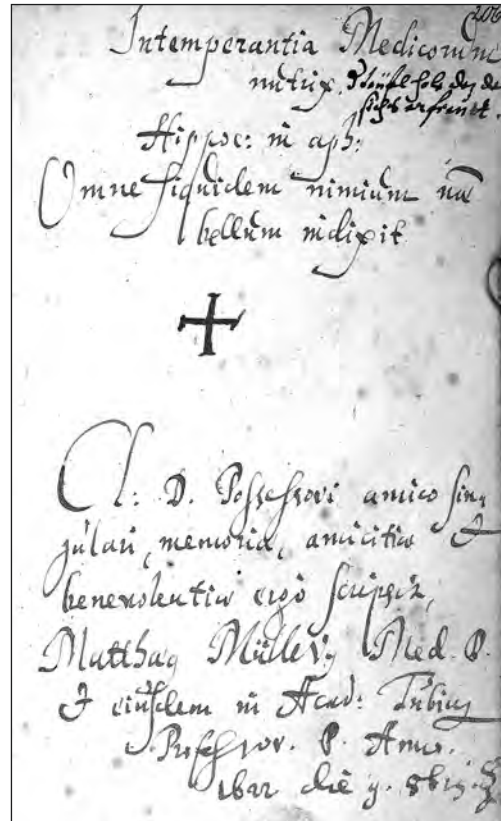 206
Intemperantia Medicorum
nutrix.
Hippoc: in aph:
Omne siquidem nimium
bellum indixit
Cl: D. Possessori amico sin
gulari, memoriæ, amicitiæ &
benevolentiæ ergò scripsit,
Matthæus Müllerus Med. D.
& eiusdem in Acad: Tubing
Professor. P.
1622 die